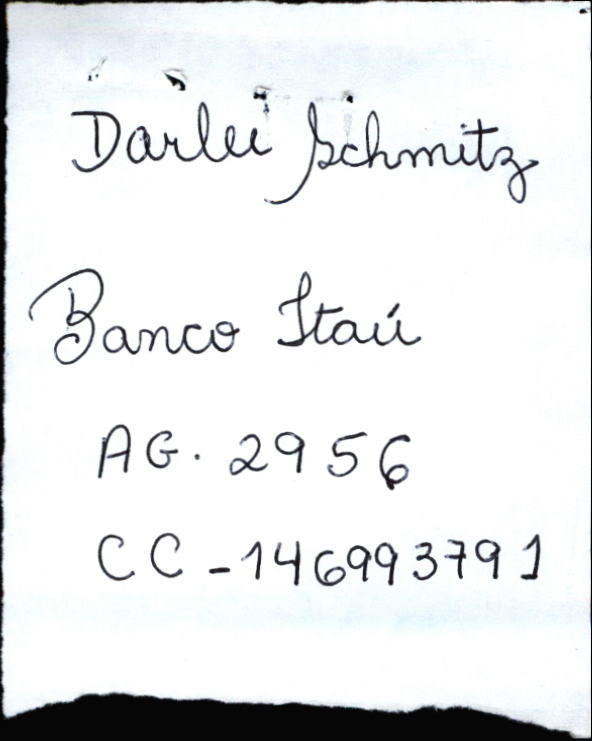 Darlei Schmitz
Banco Itaú
AG. 2956
CC - 146993791